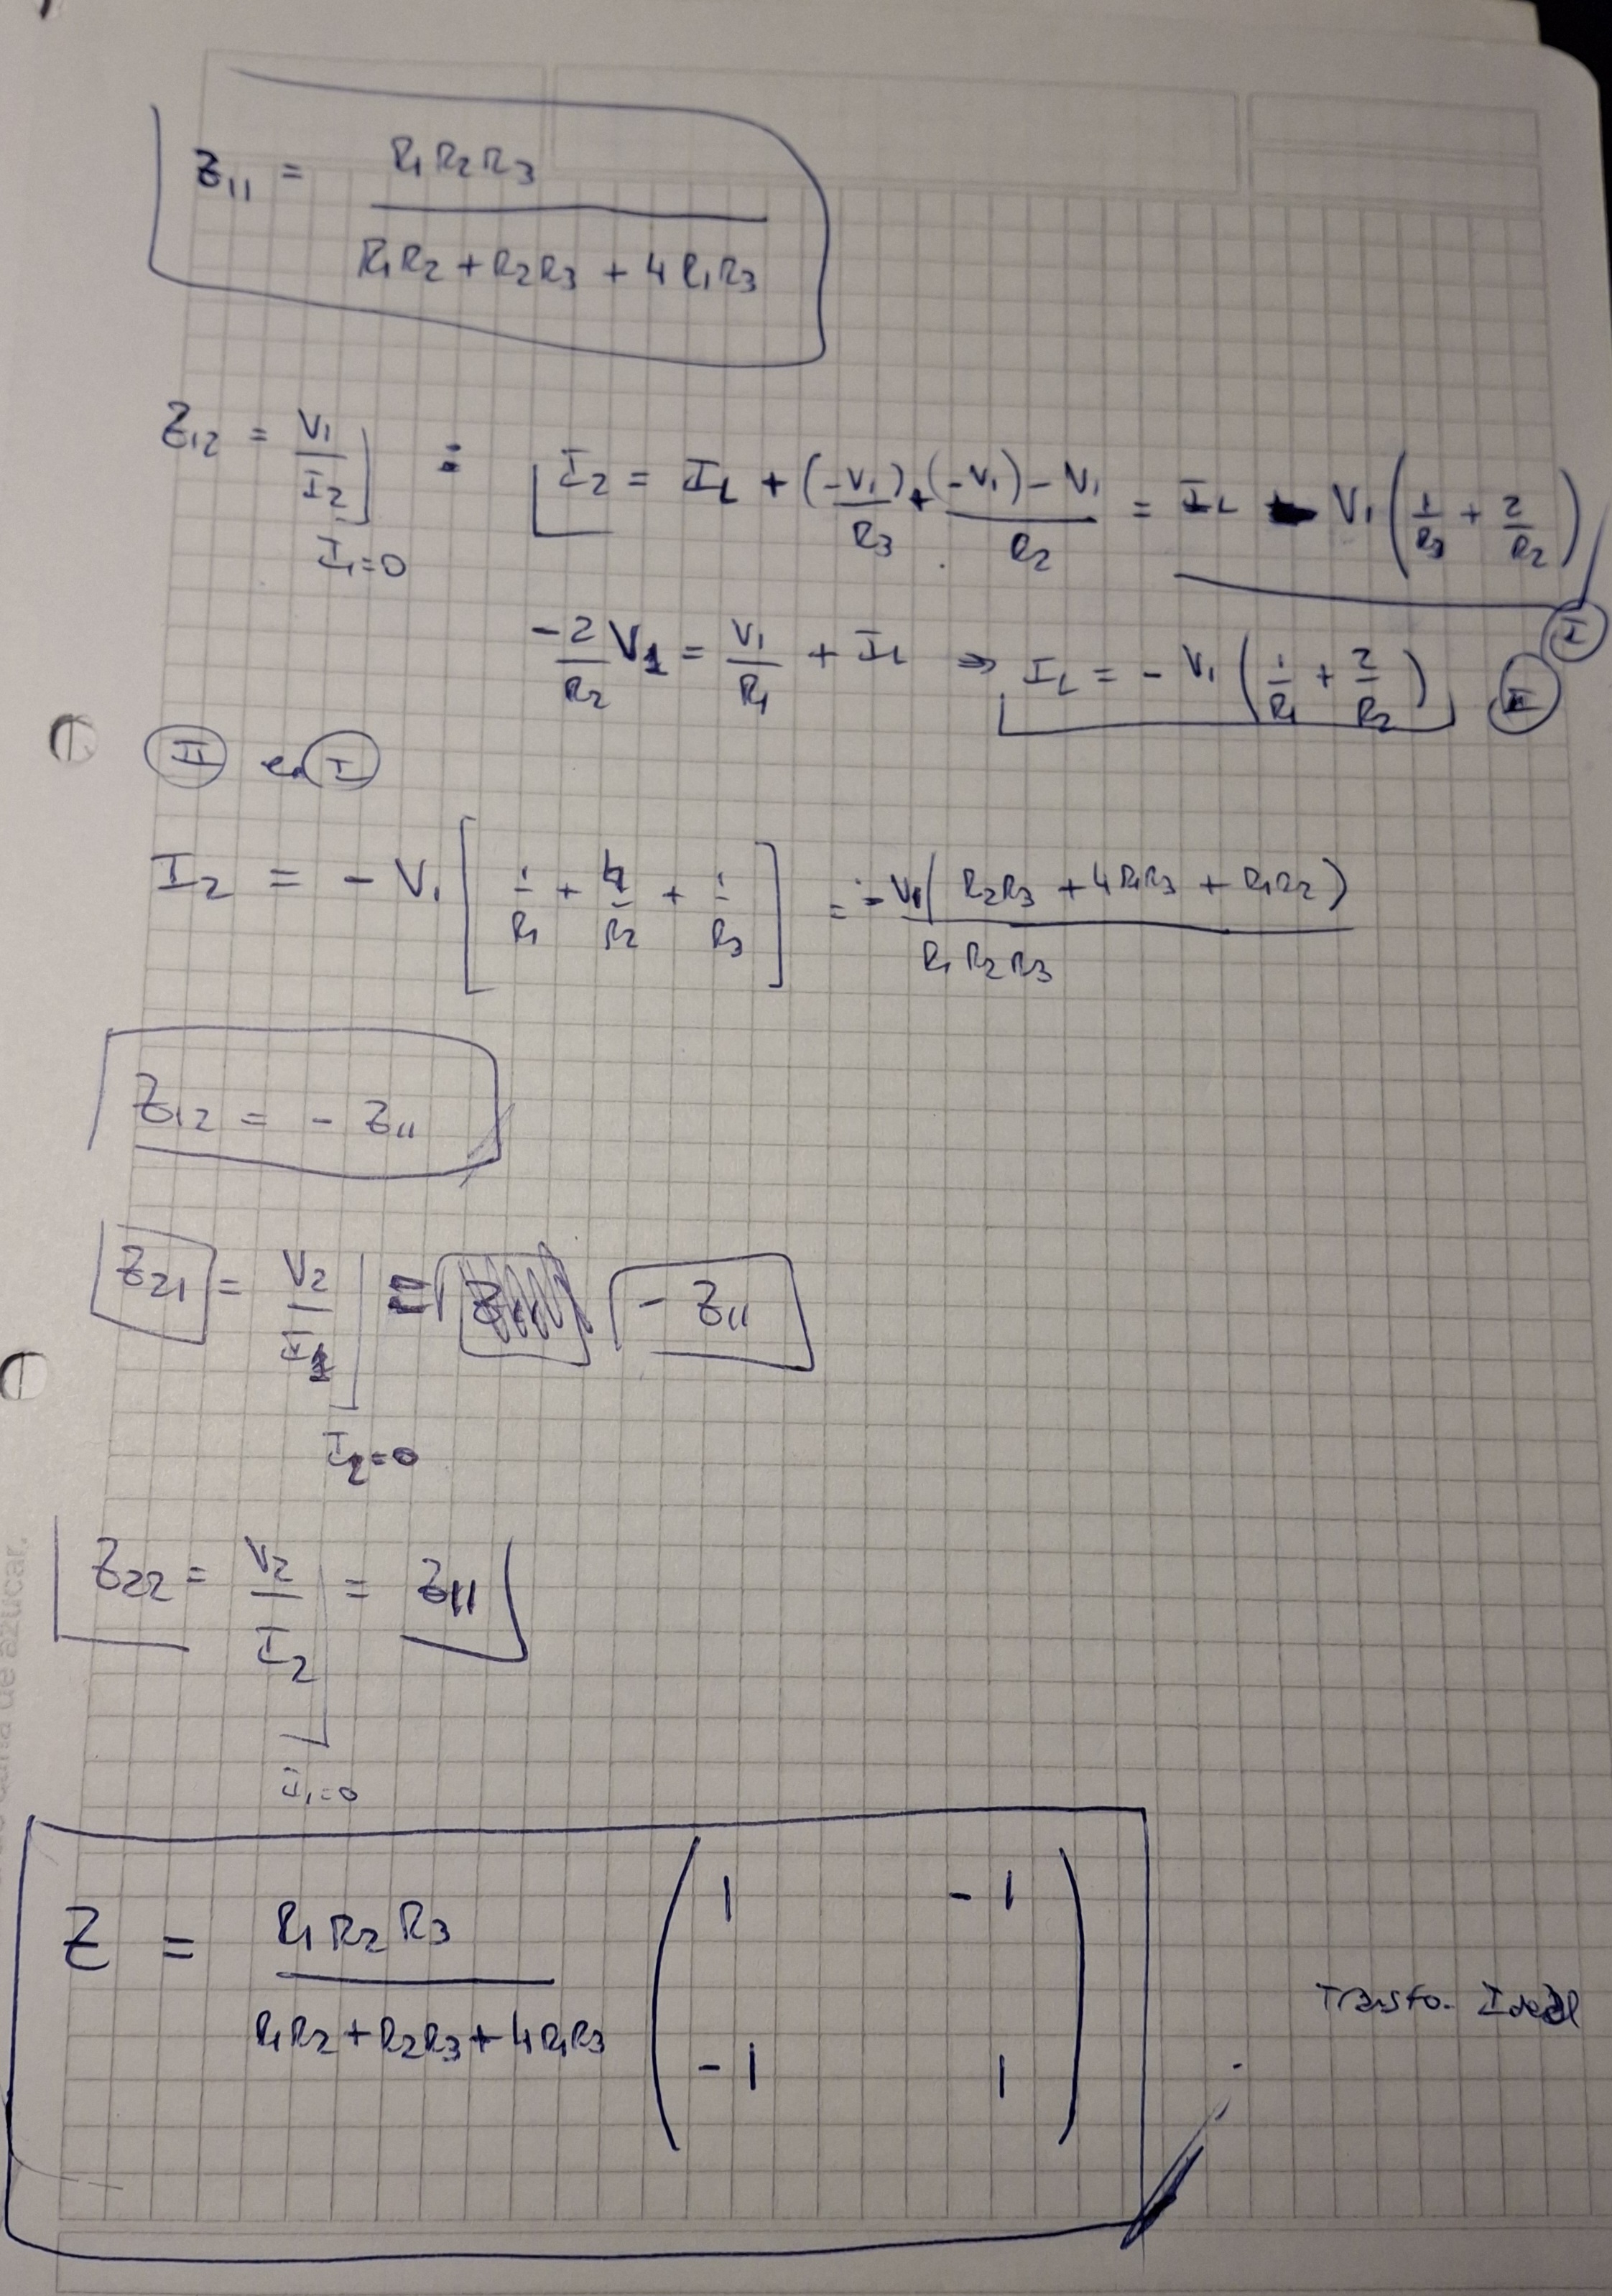 Z11 = R1R2R3 / (R1R2 + R2R3 + 4R1R3)
Z12 = V1/I2 ]I1=0 = I2 = IL + (-V1)/R3 + ((-V1) - V1)/R2 = IL - V1 (1/R3 + 2/R2) I
-2/R2 V1 = V1/R1 + IL ⇒ IL = - V1 (1/R1 + 2/R2) II
II en I
I2 = - V1 [1/R1 + 4/R2 + 1/R3] = -V1( R2R3 + 4R1R3 + R1R2) / R1R2R3
Z12 = - Z11
Z21 = V2/I1 ]I2=0 = - Z11
Z22 = V2/I2 ]I1=0 = Z11
Z = R1R2R3 / (R1R2 + R2R3 + 4R1R3) (1 -1
-1 1)
Transfo. Ideal
de azucar.